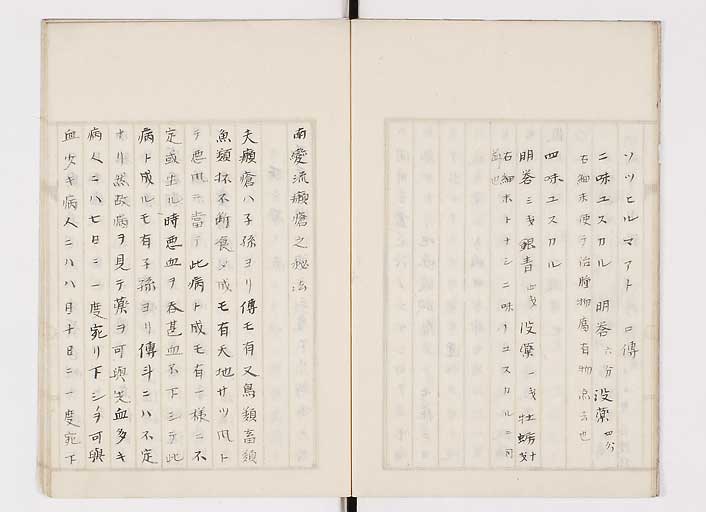 ソツヒルマアト 口傳
二味ユスカル 明礬 六分 没藥 四分
右細末使テ治腫物腐有物
四味ユスカル
明礬 銀青 没藥 一 牡蛎
右細ホトナシニ味ノユスカルニ可
南蠻流癩瘡之秘法
夫癩瘡ハ子孫ヨリ傳モ有又鳥類畜類
魚類抔不断食〆成モ有天地サツ風ト
テ悪風ニ當テ此病ト成モ有一様ニ不
定或生ルヽ時悪血ヲ吞甚血不下シテ此
病ト成ルモ有子孫ヨリ傳斗ニハ不定
ナリ然故病ヲ見テ藥ヲ可與先血多キ
病人ニハ七日ニ一度宛リ下シヲ可與
血少キ病人ニハ八日十日ニ一度宛下